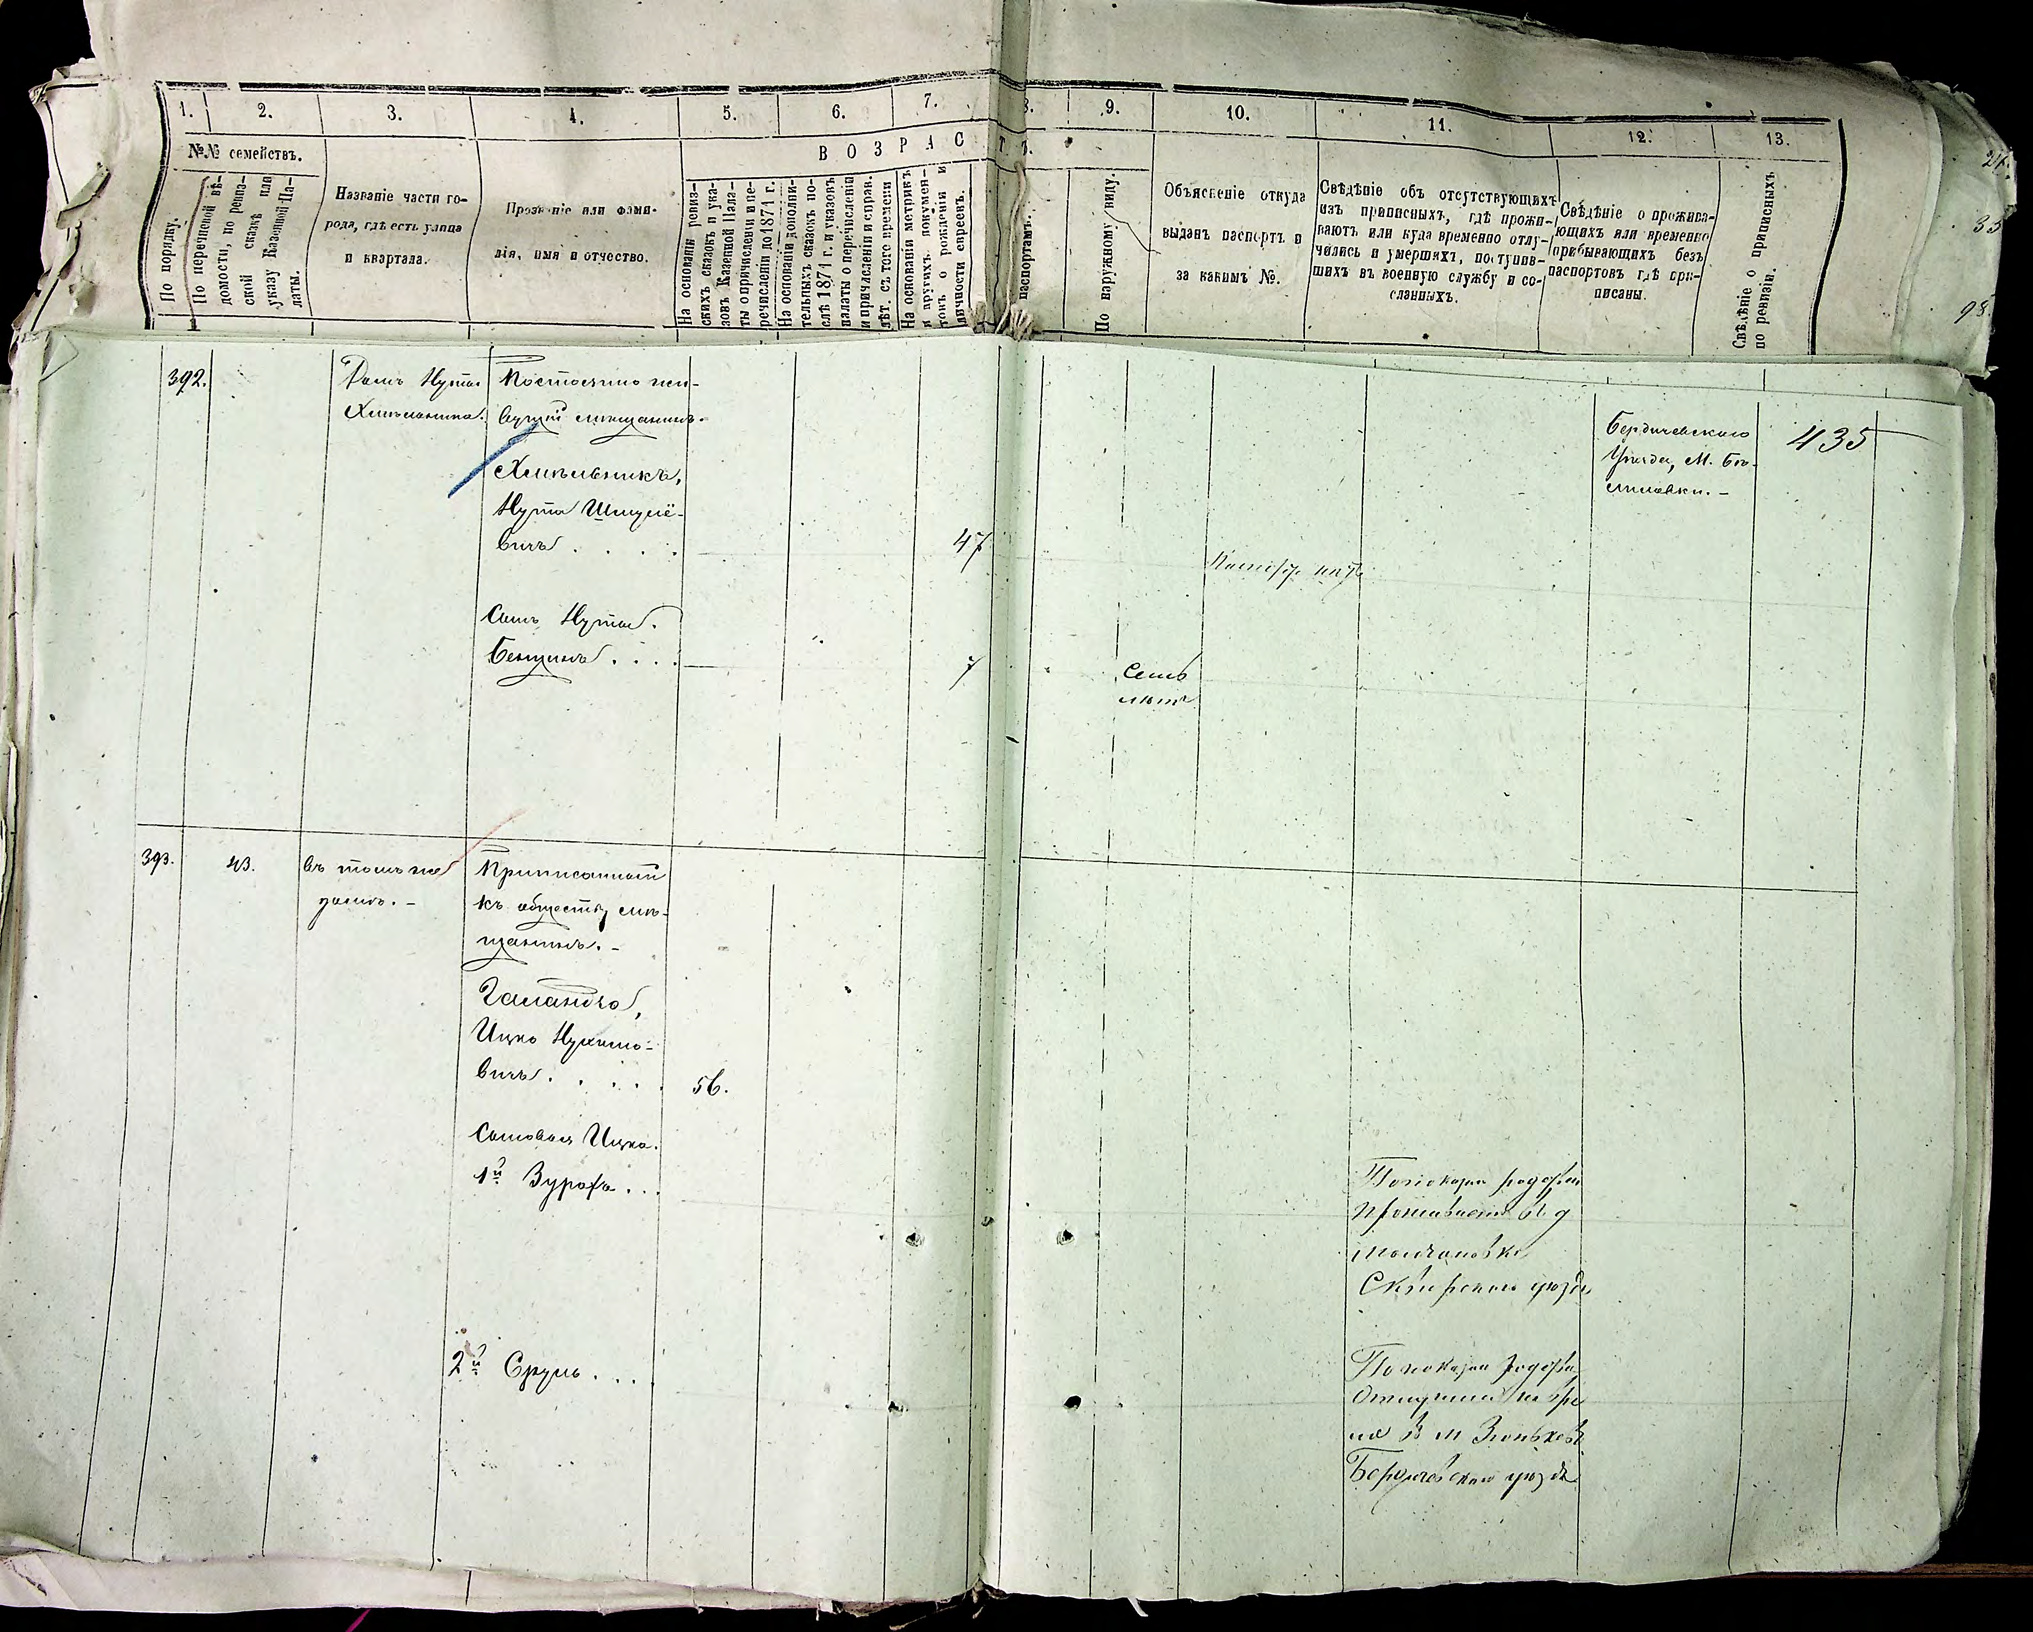 1. 2. 3. 4. 5. 6. 7. 8. 9. 10. 11. 12. 13.
№№ семействъ.
ВОЗРАСТЪ.
По порядку.
По перечневой вѣ-
домости, по ревиз-
ской сказкѣ или
указу Казенной Па-
латы.
Названіе части го-
рода, гдѣ есть улица
и квартала.
Прозваніе или фами-
лія, имя и отчество.
На основаніи ревиз-
скихъ сказокъ и ука-
зовъ Казенной Пала-
ты о причисленіи и пе-
речисленіи до 1874 г.
На основаніи дополни-
тельныхъ сказокъ по-
слѣ 1874 г. и указовъ
палаты о перечисленіи
и причисленіи и справ.
лѣт. съ того времени
На основаніи метрикъ
и другихъ докумен-
товъ о рожденіи и
личности евреевъ.
паспортамъ.
По наружному виду.
Объясненіе откуда
выданъ паспортъ и
за какимъ №.
Свѣдѣніе объ отсутствующихъ
изъ приписныхъ, гдѣ прожи-
ваютъ или куда временно отлу-
чились и умершихъ, поступив-
шихъ въ военную службу и со-
сланныхъ.
Свѣдѣніе о прожива-
ющихъ или временно
прибывающихъ безъ
паспортовъ гдѣ при-
писаны.
Свѣдѣніе о приписныхъ
по ревизіи.
392.
Домъ Нуты
Хмѣльника.
Постоянно жи-
вущій мѣщанинъ.
Хмѣльникъ,
Нута Шмулё-
вичъ . . . .
47
Бердичевскаго
Уѣзда, М. Бѣ-
лиловки. –
435
Сынъ Нуты.
Бенцинъ . . . .
7
Семь
лѣтъ
393.
43.
въ томъ же
домѣ. –
Приписанный
къ обществу мѣ-
щанинъ. –
Галандзъ,
Ицко Нухимо-
вичъ . . . . .
56.
Сыновья Ицка.
1й Зурахъ . . .
По показан родствен
проживаетъ въ д
Молчановкѣ
Сквирскаго уѣзда
2й Сруль . . . .
По показан родствен
въ м
Бердичевскаго уѣзда